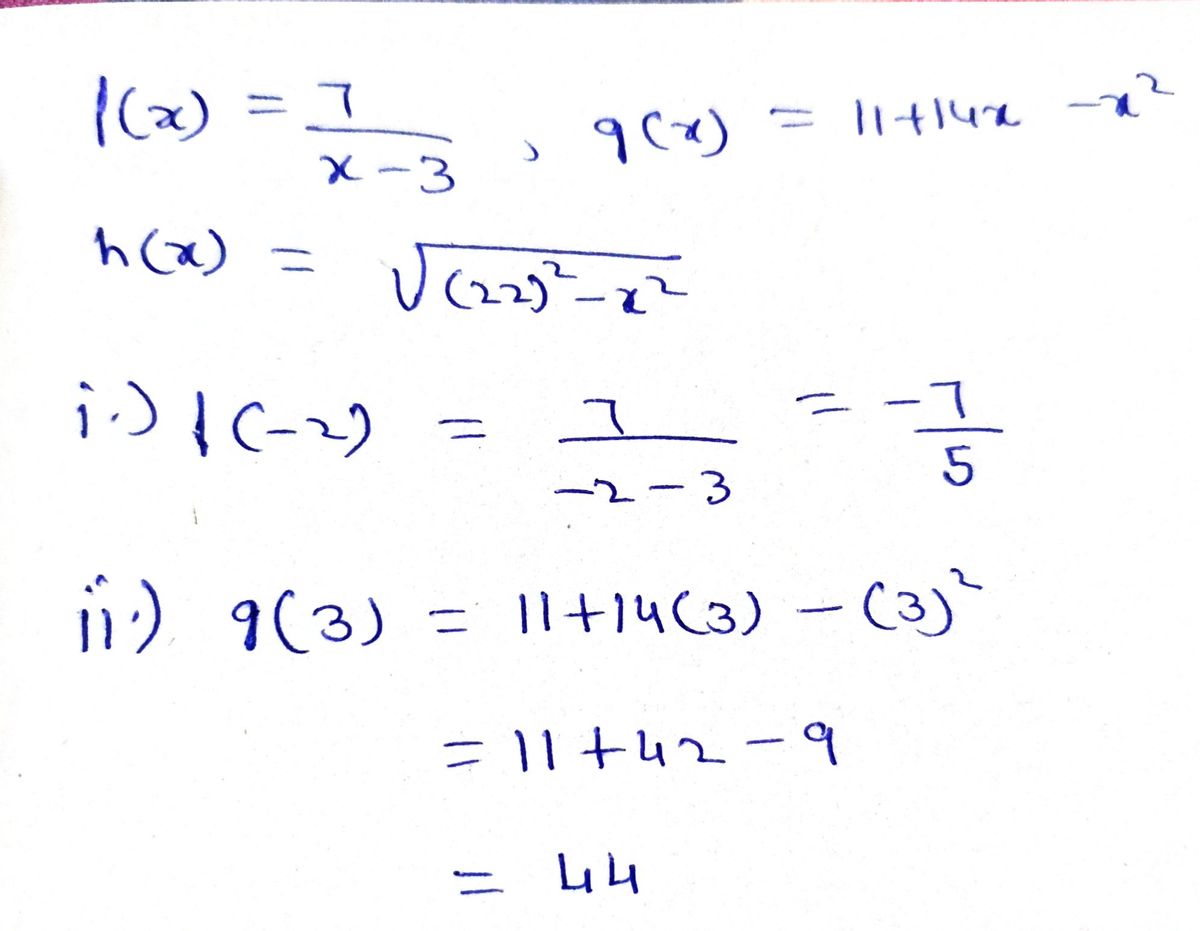 f(x) = 7/(x-3) , g(x) = 11+14x -x²
h(x) = √((22)²-x²)
i.) f(-2) = 7/(-2-3) = -7/5
ii.) g(3) = 11+14(3) - (3)²
= 11+42-9
= 44